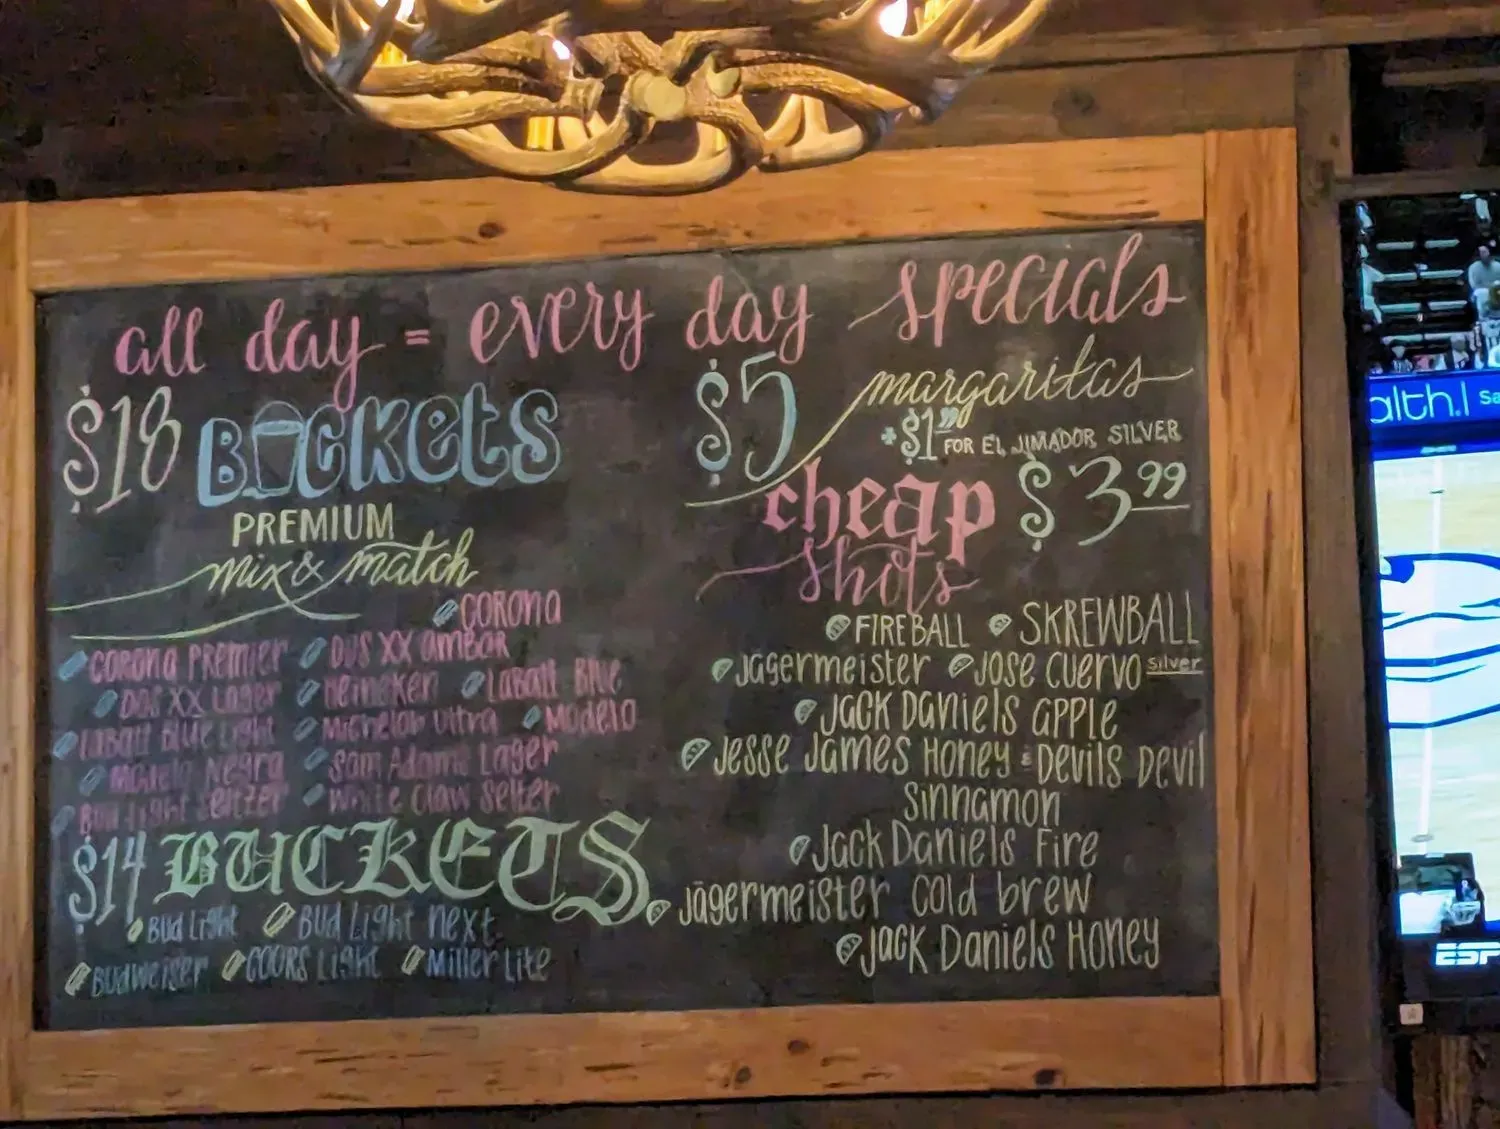 all day = every day specials
$18 BUCKETS
PREMIUM
mix & match
CORONA
CORONA PREMIER
DOS XX AMBAR
DOS XX LAGER
HEINEKEN
LABATT BLUE
LABATT BLUE LIGHT
MICHELOB ULTRA
MODELO
MODELO NEGRA
SAM ADAMS LAGER
BUD LIGHT SELTZER
WHITE CLAW SELTER
$14 BUCKETS
BUD LIGHT
BUD LIGHT NEXT
BUDWEISER
COORS LIGHT
MILLER LITE
$5 margaritas
+$1.00 FOR EL JIMADOR SILVER
cheap $3.99
shots
FIREBALL
SKREWBALL
JÄGERMEISTER
JOSE CUERVO SILVER
JACK DANIELS APPLE
JESSE JAMES HONEY & DEVILS DEVIL
SINNAMON
JACK DANIELS FIRE
JÄGERMEISTER COLD BREW
JACK DANIELS HONEY
alth.
ESP